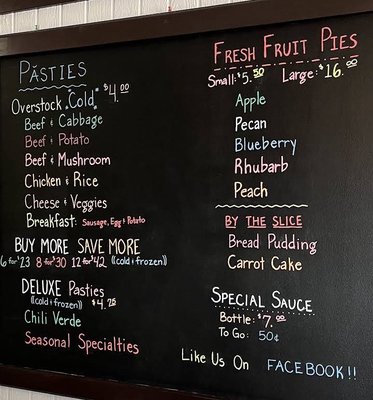 PASTIES
Overstock "Cold" $4.00
Beef & Cabbage
Beef & Potato
Beef & Mushroom
Chicken & Rice
Cheese & Veggies
Breakfast: Sausage, Egg & Potato
BUY MORE SAVE MORE
6 for $23 8 for $30 12 for $42 ((cold & frozen))
DELUXE Pasties
((cold & frozen)) $4.75
Chili Verde
Seasonal Specialties
FRESH FRUIT PIES
Small: $5.50 Large: $16.00
Apple
Pecan
Blueberry
Rhubarb
Peach
BY THE SLICE
Bread Pudding
Carrot Cake
SPECIAL SAUCE
Bottle: $7.00
To Go: 50¢
Like Us On FACEBOOK!!